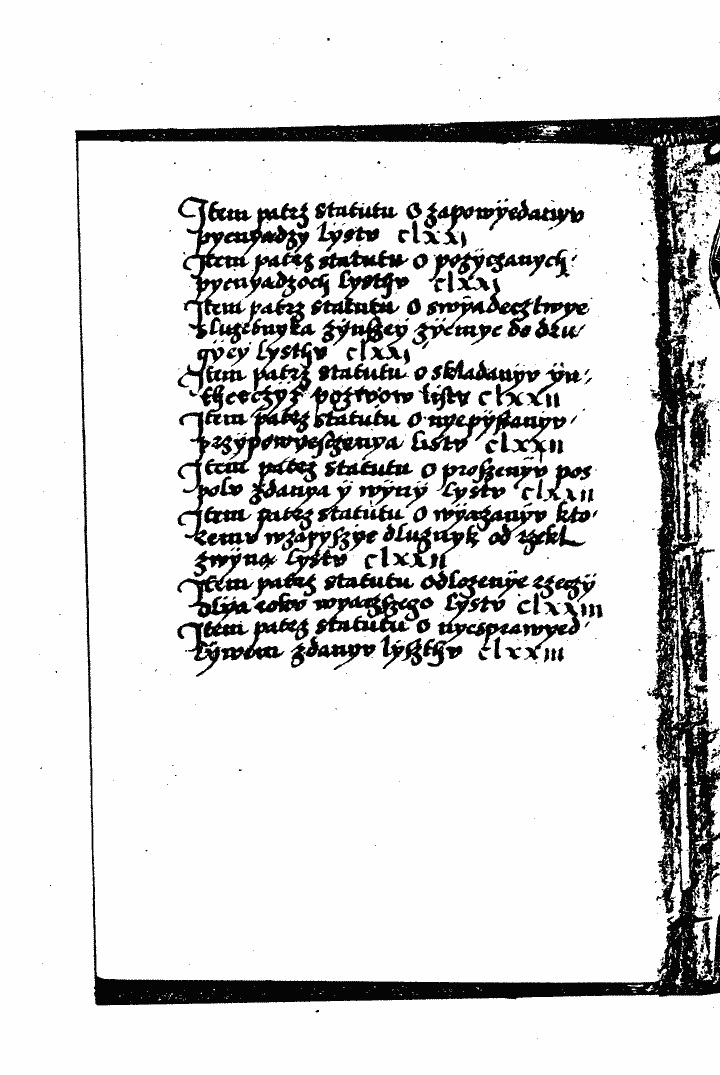 Item patrz statutu O zapowÿedanyv
pyenyadzy lystv clxxj
Item patrz statutu O pozÿczanych
pyenyadzoch lysthv clxxj
Item patrz statutu O swÿadecztwye
slugebnyka zÿnszey zÿemye do dru
gÿey lysthv clxxj
Item patrz statutu O skladanyv ÿn
pozwow listv clxxii
Item patrz statutu O nyepÿssanyv
przÿpowyesczenya listv clxxii
Item patrz statutu O proszenyv pos
polv zdanya ÿ wÿnÿ lystv clxxii
Item patrz statutu O wÿazanyv kto
remv wzapÿszye dluznyk od rzekl
zwÿna lystv clxxii
Item patrz statutu odlozenÿe rzeczÿ
dlÿa rokv wyaczszego lystv clxxiii
Item patrz statutu O nyesprawyed
lÿwem zdanyv lyszthv clxxiii